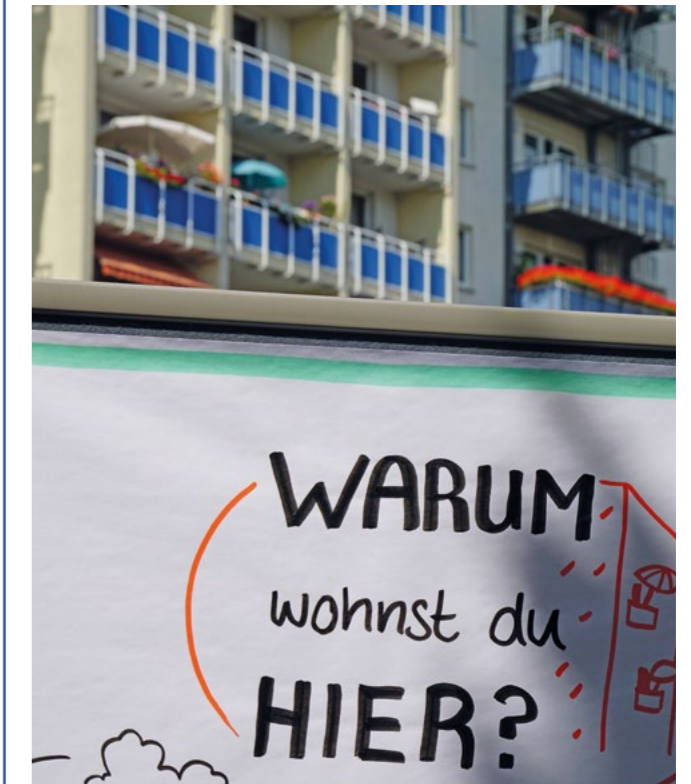 WARUM
wohnst du
HIER?